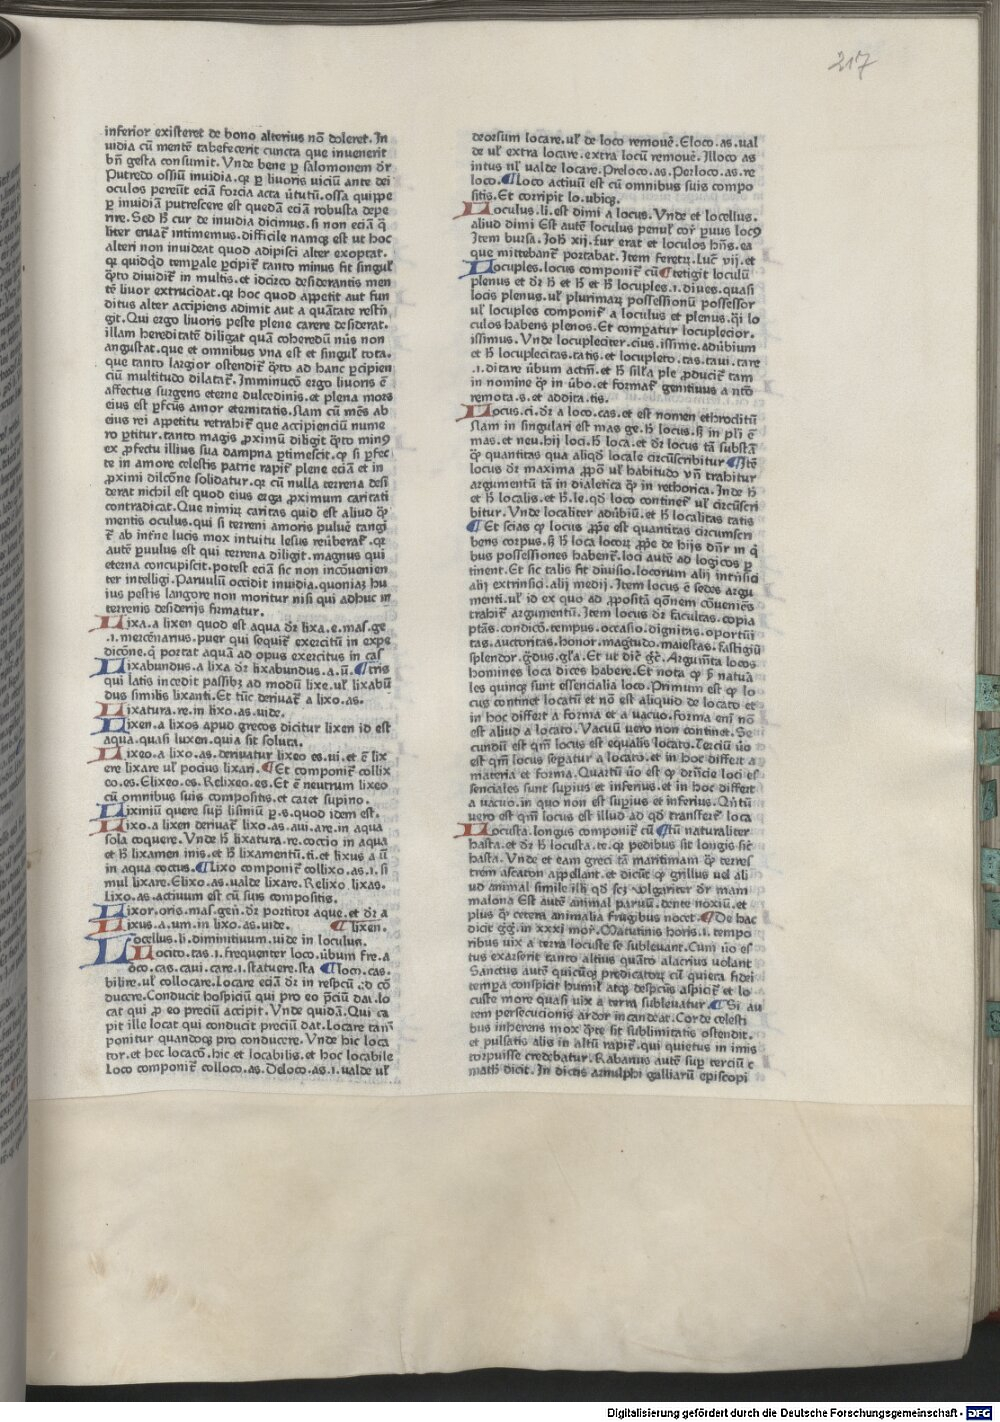 217
inferior existeret de bono alterius nō doleret. In
uidia cū mentē tabefecerit cuncta que inuenerit
bn̄ gesta consumit. Vnde bene ꝑ salomonem dr̄
Putredo ossiū inuidia. qꝛ ꝑ liuoris uiciū ante dei
oculos pereūt eciā forcia acta ūtutū. ossa quippe
ꝑ inuidiā putrescere est quedā eciā robusta depe
rire. Sed hͦ cur de inuidia dicimus. si non eciā q̄
liter eruat̄ intimemus. difficile namqꝫ est ut hoc
alteri non inuideat quod adipisci alter exoptat.
qꝛ quidqd temꝑale ꝑcipit̄ tanto minus fit singuł
q̄to diuidit̄ in multis. et idcirco desiderantis men
tē liuor extrucidat. qꝛ hoc quod appetit aut fun
ditus alter accipiens adimit aut a quātate restrī
git. Qui ergo liuoris peste plene carere desiderat.
illam hereditatē diligat quā coheredū nūs non
angustat. que et omnibus vna est et singuł tota.
que tanto largior ostendit̄ q̄to ad hanc ꝑcipien
ciū multitudo dilatat̄. Imminucō ergo liuoris ē
affectus surgens eterne dulcedinis. et plena mors
eius est ꝑfcūs amor eternitatis. Nam cū mēs ab
eius rei appetitu retrahit̄ que accipienciū nume
ro ꝑtitur. tanto magis ꝓximū diligit q̄to minꝯ
ex ꝓfectu illius sua dampna ꝑtimescit. qꝫ si ꝑfec
te in amore celestis patrie rapit̄ plene eciā et in
ꝓximi dilcōne solidatur. qꝛ cū nulla terrena desi
derat nichil est quod eius erga ꝓximum caritati
contradicat. Que nimiꝝ caritas quid est aliud qꝫ
mentis oculus. qui si terreni amoris puluē tangi
t̄ ab inťne lucis mox intuitu lesus reūberat̄. qꝛ
autē ꝑuulus est qui terrena diligit. magnus qui
eterna concupiscit. potest eciā sic non incōuenien
ter intelligi. Paruulū occidit inuidia. quoniaꝫ hu
ius pestis langore non moritur nisi qui adhuc in
terrenis desiderijs firmatur.
Lixa. a lixen quod est aqua dr̄ lixa. e. mas. ge
.i. mercēnarius. puer qui sequit̄ exercitū in expe
dicōne. q̄ portat aquā ad opus exercitus in cas
Lixabundus. a lixa dr̄ lixabundus. a. ū. ¶tris
qui latis incedit passibꝫ ad modū lixe. uł lixabū
dus similis lixanti. Et tūc deriuat̄ a lixo. as.
Lixatura. re. in lixo. as. uide.
Lixen. a lixos apud grecos dicitur lixen id est
aqua. quasi luxen. quia sit soluta.
Lixeo. a lixo. as. deriuatur lixeo es. ui. et ē lix
ere lixare uł pocius lixari. ¶Et componit̄ collix
eo. es. Elixeo. es. Relixeo. es. Et ē neutrum lixeo
cū omnibus suis compositis. et caret supino.
Lixiniū quere supͣ lisiniū ꝑ. s. quod idem est.
Lixo. a lixen deriuat̄ lixo. as. aui. are. in aqua
sola coquere. Vnde hͨ lixatura. re. coccio in aqua
et hͦ lixamen inis. et hͦ lixamentū. ti. et lixus a ū
in aqua coctus. ¶Lixo componit̄ collixo. as. i. si
mul lixare. Elixo. as. ualde lixare. Relixo lixas.
Lixo. as. actiuum est cū suis compositis.
Lixor. oris. mas. gen̄. dr̄ portitor aque. et dr̄ a
Lixus. a. um. in lixo. as. uide. ¶ lixen.
Locellus. li. diminitiuum. uide in loculus.
Locito. tas. i. frequenter loco. ūbum fre. a
loco. cas. caui. care. i. statuere. sta ¶ loco. cas.
bilire. uł collocare. Locare eciā dr̄ in respcū ad cō
ducere. Conducit hospiciū qui pro eo p̄ciū dat. lo
cat qui ꝓ eo preciū accipit. Vnde quidā. Qui ca
pit ille locat qui conducit preciū dat. Locare tam̄
ponitur quandoqꝫ pro conducere. Vnde hic loca
tor. et hec locacō. hic et locabilis. et hoc locabile
Loco componit̄ colloco. as. Deloco. as. i. ualde uł
deorsum locare. uł de loco remouē. Eloco. as. ual
de uł extra locare. extra locū remouē. Illoco as
intus uł ualde locare. Preloco. as. Perloco. as. re
loco. ¶Loco actiuū est cū omnibus suis compo
sitis. Et corripit lo. ubiqꝫ.
Loculus. li. est dimi a locus. Vnde et locellus.
aliud dimi Est autē loculus penuł cor̄ ꝑuus locꝯ
Item bursa. Joh̄ xij. fur erat et loculos hn̄s. ea
que mittebant̄ portabat. Item feretꝝ. Luc̄ vij. et
Locuples. locus componit̄ cū ¶tetigit loculū
plenus et dr̄ hͨ et hͨ et hͦ locuples. i. diues. quasi
locis plenus. uł plurimaꝝ possessionū possessor
uł locuples componit̄ a loculus et plenus. q̄i lo
culos habens plenos. Et comꝑatur locuplecior.
issimus. Vnde locupleciter. cius. issime. adūbium
et hͨ locuplecitas. tatis. et locupleto. tas. taui. tare
.i. ditare ūbum actiū. et hͦ siłia ple ꝓducit̄ tam
in nomine qꝫ in ūbo. et format̄ genitiuus a ntō
remota. s. et addita. tis.
Locus. ci. dr̄ a loco. cas. et est nomen ethroclitū
Nam in singulari est mas ge. hͨ locus. sꝫ in pl̄i ē
mas. et neu. hij loci. hͨ loca. et dr̄ locus tā substā
qꝫ quantitas qua aliqd locale circūscribitur ¶Itē
locus dr̄ maxima ꝓpō uł habitudo vn̄ trahitur
argumentū tā in dialetica qꝫ in rethorica. Inde hͨ
et hͨ localis. et hͦ. le. qd loco continet̄ uł circūscri
bitur. Vnde localiter adūbiū. et hͨ localitas tatis
¶Et scias qꝫ locus ꝓpe est quantitas circumscri
bens corpus. sꝫ hͨ loca locoꝝ ꝓpe de hijs dn̄r in q̄
bus possessiones habent̄. loci autē ad logicos ꝑ
tinent. Et sic talis fit diuisio. locorum alij intn̄sici
alij extrinsici. alij medij. Item locus ē sedes argu
menti. uł id ex quo ad ꝓpositā qōnem cōueniēs
trahit̄ argumentū. Item locus dr̄ facultas. copia
ptās. condicō. tempus. occasio. dignitas. oportūi
tas. auctoritas. honor. magtudo. maiestas. fastigiū
splendor. gͣdus. głia. Et ut dic̄ gc̄. Argumīta locos
homines loca dices habere. Et nota qꝫ ẜm natuā
les quinqꝫ sunt essencialia loco. Primum est qꝫ lo
cus continet locatū et nō est aliquid de locato et
in hoc differt a forma et a vacuo. forma eni nō
est aliud a locato. Vacuū uero non continet. Se
cundū est qm̄ locus est equalis locato. Terciū ūo
est qm̄ locus seꝑatur a locato. et in hoc differt a
materia et forma. Quartū ūo est qꝫ drn̄cie loci es
senciales sunt suꝑius et inferius. et in hoc differt
a vacuo. in quo non est suꝑius et inferius. Qn̄tū
uero est qm̄ locus est illud ad qd transfert̄ loca
Locusta. longus componit̄ cū ¶tū naturaliter
hasta. et dr̄ hͨ locusta. te. qꝛ pedibus sit longis sic̄
hasta. Vnde et eam greci tā maritimam qꝫ terres
trem ascaton appellant. et dicūt qꝫ grillus uel ali
ud animal simile illi qd scꝫ wlgariter dr̄ mam
malona Est autē animal paruū. dente noxiū. et
plus qꝫ cetera animalia frugibus nocet. ¶De hac
dicit gg̓. in xxxi mor̄. Matutinis horis. i. tempo
ribus uix a terra locuste se subleuant. Cum ūo es
tus exarserit tanto altius quāto alacrius volant
Sanctus autē quicūqꝫ predicatoꝝ cū quieta fidei
temꝑa conspicit humił atqꝫ despcūs aspicit̄ et lo
custe more quasi uix a terra subleuatur. ¶Si au
tem persecucionis ardor incandeat. Corde celesti
bus inherens mox q̄te sit sublimitatis ostendit.
et pulsatis alis in altū rapit̄. qui quietus in imis
torpuisse credebatur. Rabanus autē suꝑ terciū c
math̄ dicit. In dictis arnulphi galliarū episcopi
Digitalisierung gefördert durch die Deutsche Forschungsgemeinschaft - DFG